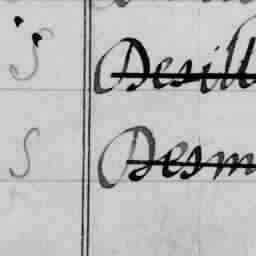 S Desill
S Desm